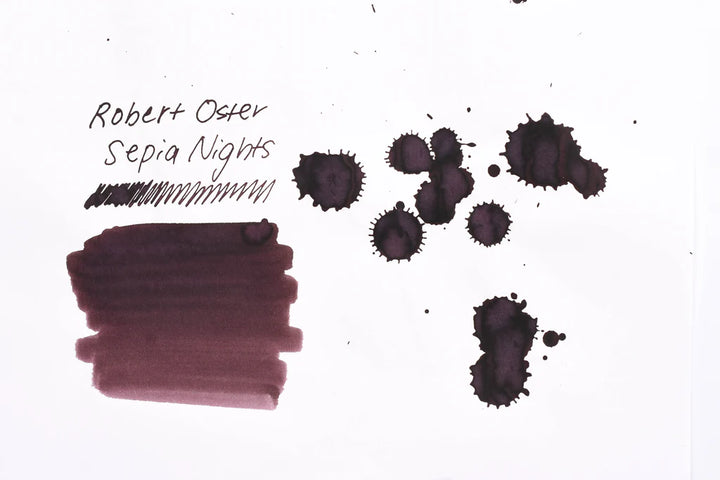 Robert Oster
Sepia Nights